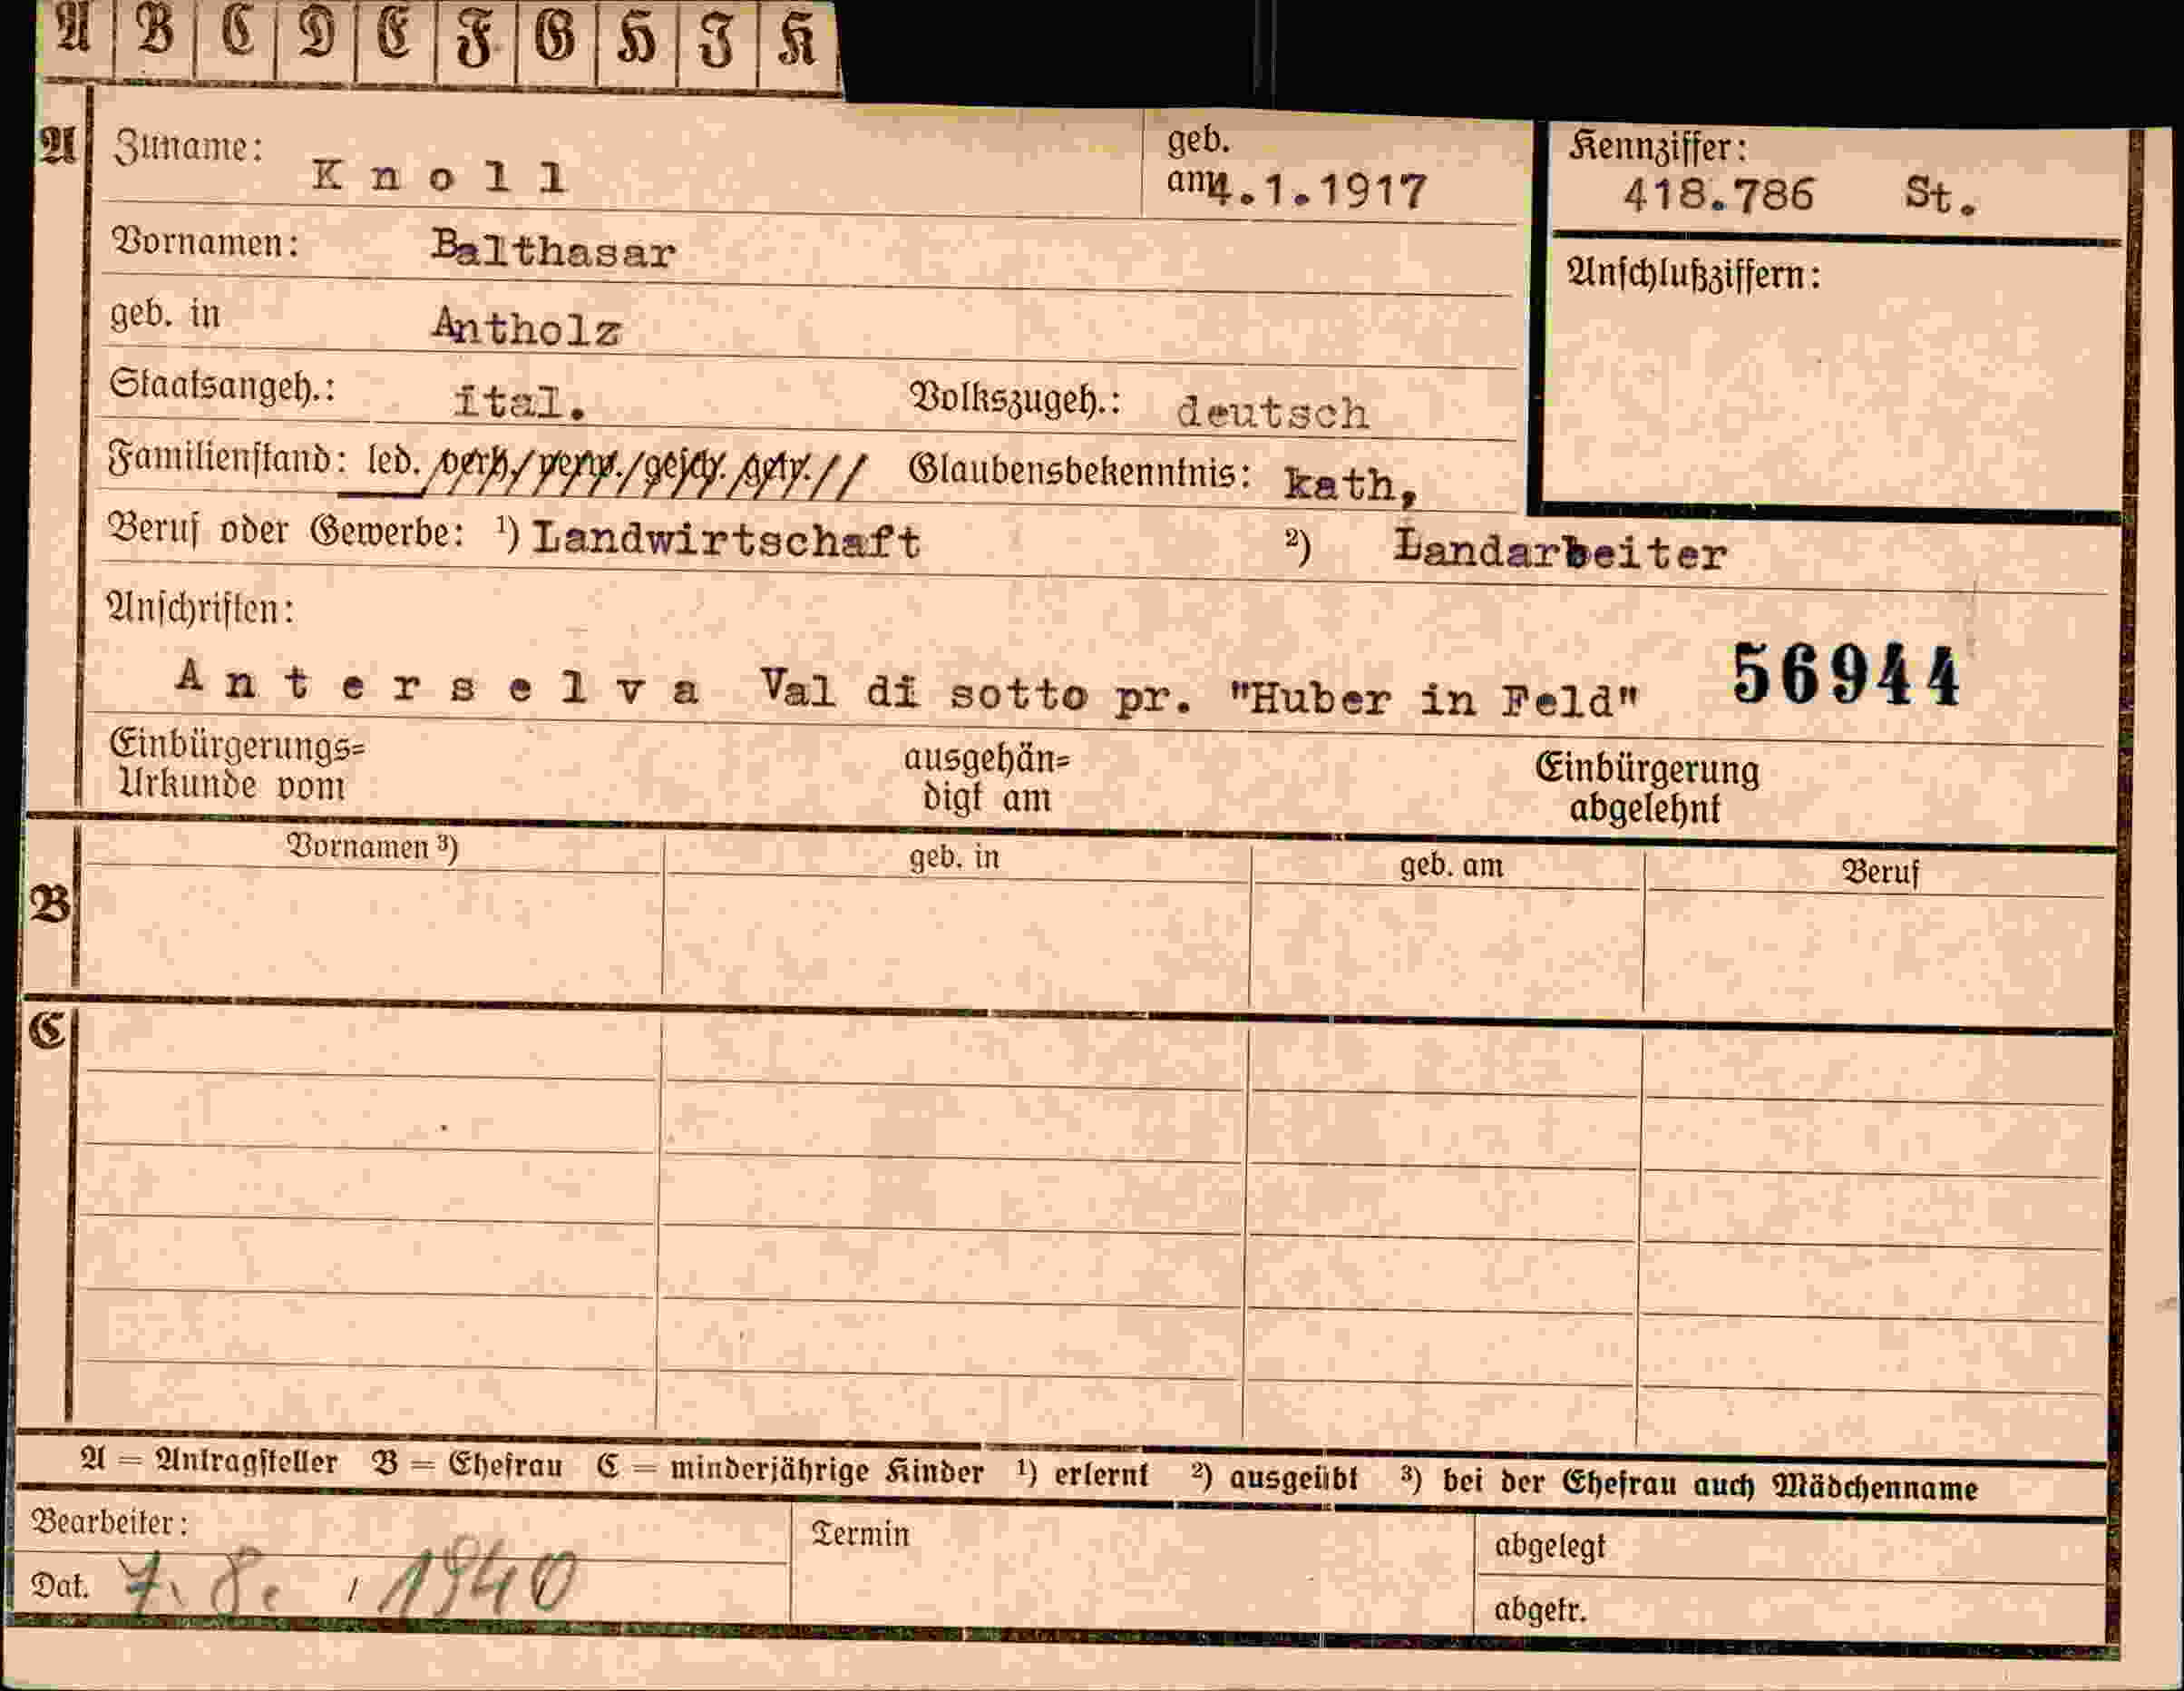 A B C D E F G H I K
A Zuname: Knoll geb. am 4.1.1917 Kennziffer: 418.786 St.
Vornamen: Balthasar
Anschlußziffern:
geb. in Antholz
Staatsangeh.: ital. Volkszugeh.: deutsch
Familienstand: led. verh./verw./gesch. getr.// Glaubensbekenntnis: kath,
Beruf oder Gewerbe: ¹) Landwirtschaft ²) Landarbeiter
Anschriften:
Anterselva Val di sotto pr. "Huber in Feld" 56944
Einbürgerungs= ausgehän= Einbürgerung
Urkunde vom digt am abgelehnt
B Vornamen ³) geb. in geb. am Beruf
C
A = Antragsteller B = Ehefrau C = minderjährige Kinder ¹) erlernt ²) ausgeübt ³) bei der Ehefrau auch Mädchenname
Bearbeiter: Termin abgelegt
Dat. 7. 8. / 1940 abgetr.